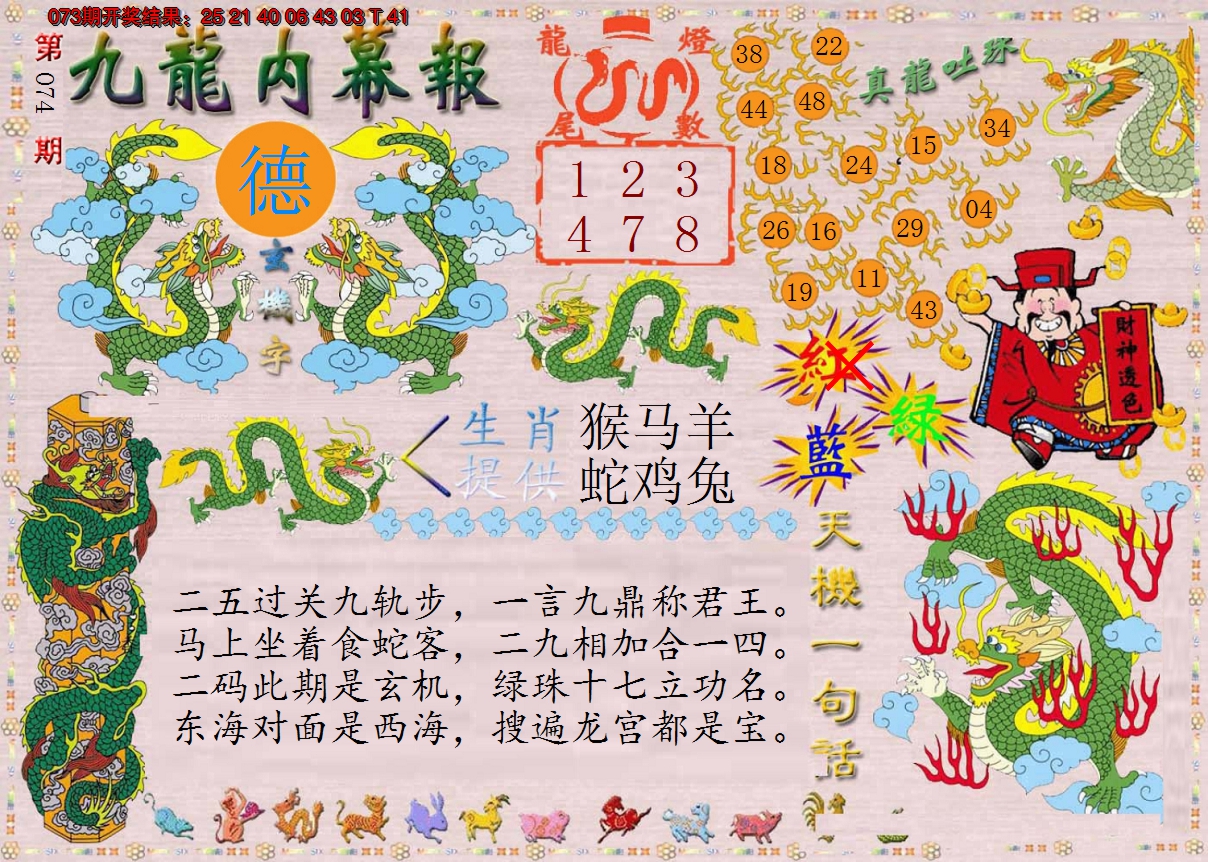 073期开奖结果：25 21 40 06 43 03 T 41
第074期
九龍内幕報
德
玄機字
龍燈
尾數
1 2 3
4 7 8
真龍吐珠
38 22
44 48
18 24 15 34
26 16 29 04
19 11 43
紅
绿
藍
財神透色
生肖提供
猴马羊
蛇鸡兔
天機一句話
二五过关九轨步，一言九鼎称君王。
马上坐着食蛇客，二九相加合一四。
二码此期是玄机，绿珠十七立功名。
东海对面是西海，搜遍龙宫都是宝。